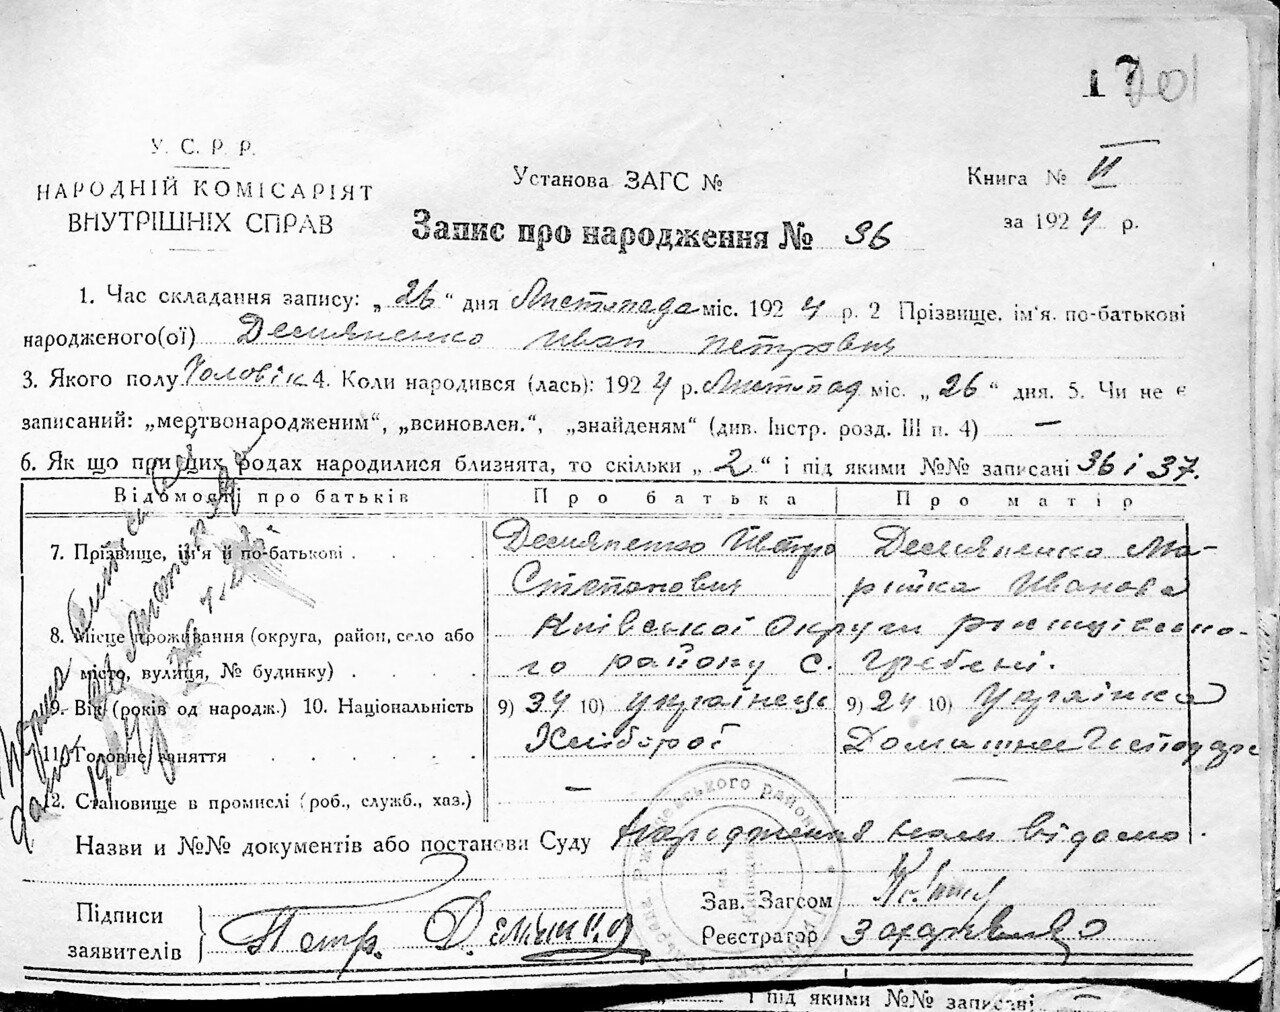 17 201
У. С. Р. Р.
НАРОДНІЙ КОМІСАРІЯТ
ВНУТРІШНІХ СПРАВ
Установа ЗАГС №
Книга № II
за 1924 р.
Запис про народження № 36
1. Час складання запису: „26“ дня Листопада міс. 1924 р. 2 Прізвище, ім'я, по-батькові
народженого(ої) Демяненко Иван Петрович
3. Якого полу Чоловік 4. Коли народився (лась): 1924 р. Листопад міс. „26“ дня. 5. Чи не є
записаний: „мертвонародженим“, „всиновлен.“, „знайденям“ (див. Інстр. розд. III п. 4) —
6. Як що при цих родах народилися близнята, то скільки „2“ і під якими №№ записані 36 і 37.
Відомості про батьків Про батька Про матір
7. Прізвище, ім'я й по-батькові Демяненко Петро Демяненко Ма-
Степанович рійка Иванова
8. Місце проживання (округа, район, село або Київської Округи Ржищівсько-
місто, вулиця, № будинку) го району с. Гребені.
9. Вік (років од народж.) 10. Національність 9) 34 10) Українець 9) 24 10) Українка
11. Головне заняття Хлібороб Домашнє
12. Становище в промислі (роб., служб., хаз.) — —
Назви и №№ документів або постанови Суду Народження нам відомо.
Підписи
заявителів
Петр. Демяненко
Зав. Загсом
Реєстратор
і під якими №№ записані —